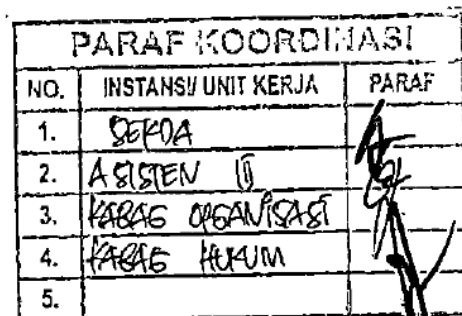 PARAF KOORDINASI
NO. INSTANSI/ UNIT KERJA PARAF
1. SEKDA
2. ASISTEN II
3. KABAG ORGANISASI
4. KABAG HUKUM
5.